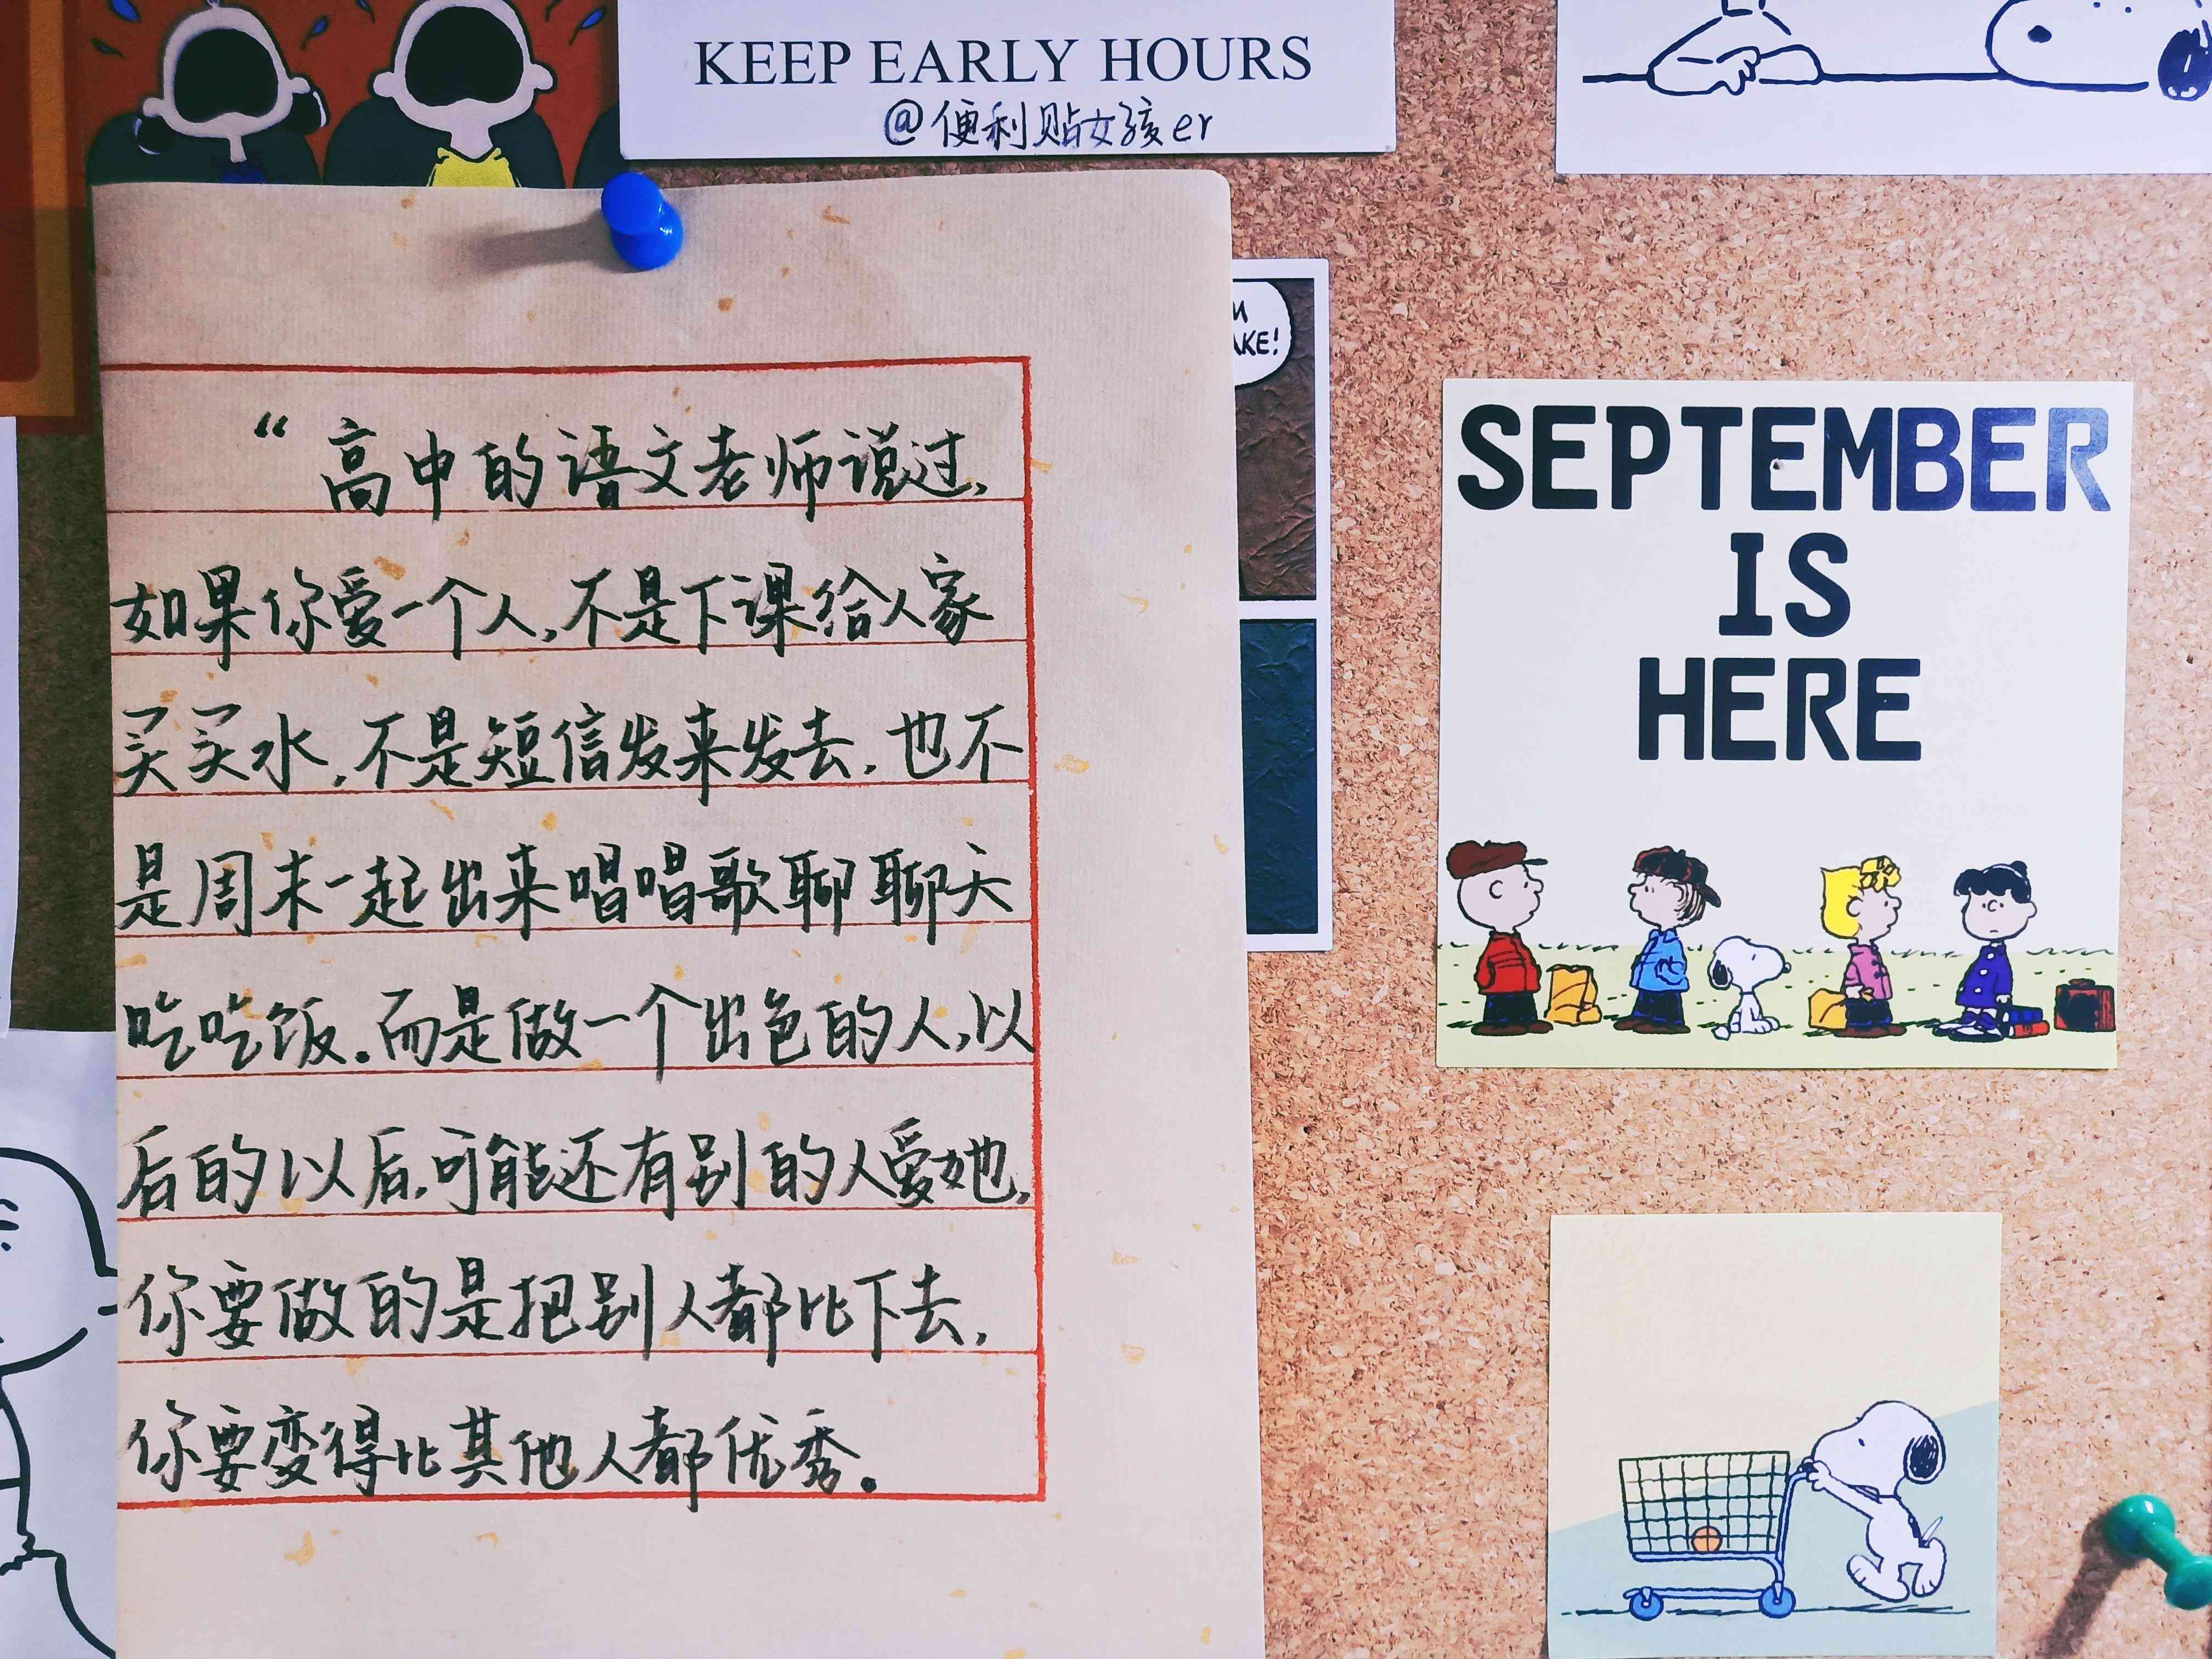 KEEP EARLY HOURS
@便利贴女孩er
“高中的语文老师说过,
如果你爱一个人,不是下课给人家
买买水,不是短信发来发去,也不
是周末一起出来唱唱歌聊聊天
吃吃饭。而是做一个出色的人,以
后的以后,可能还有别的人爱她,
你要做的是把别人都比下去,
你要变得比其他人都优秀。
SEPTEMBER
IS
HERE